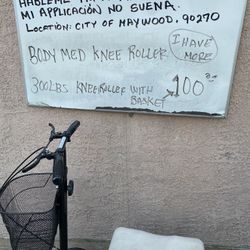 MI APPLICACIÓN NO SUENA.
LOCATION: CITY OF MAYWOOD, 90270
BODY MED KNEE ROLLER
I HAVE
MORE
300LBS KNEEROLLER WITH
BASKET
100